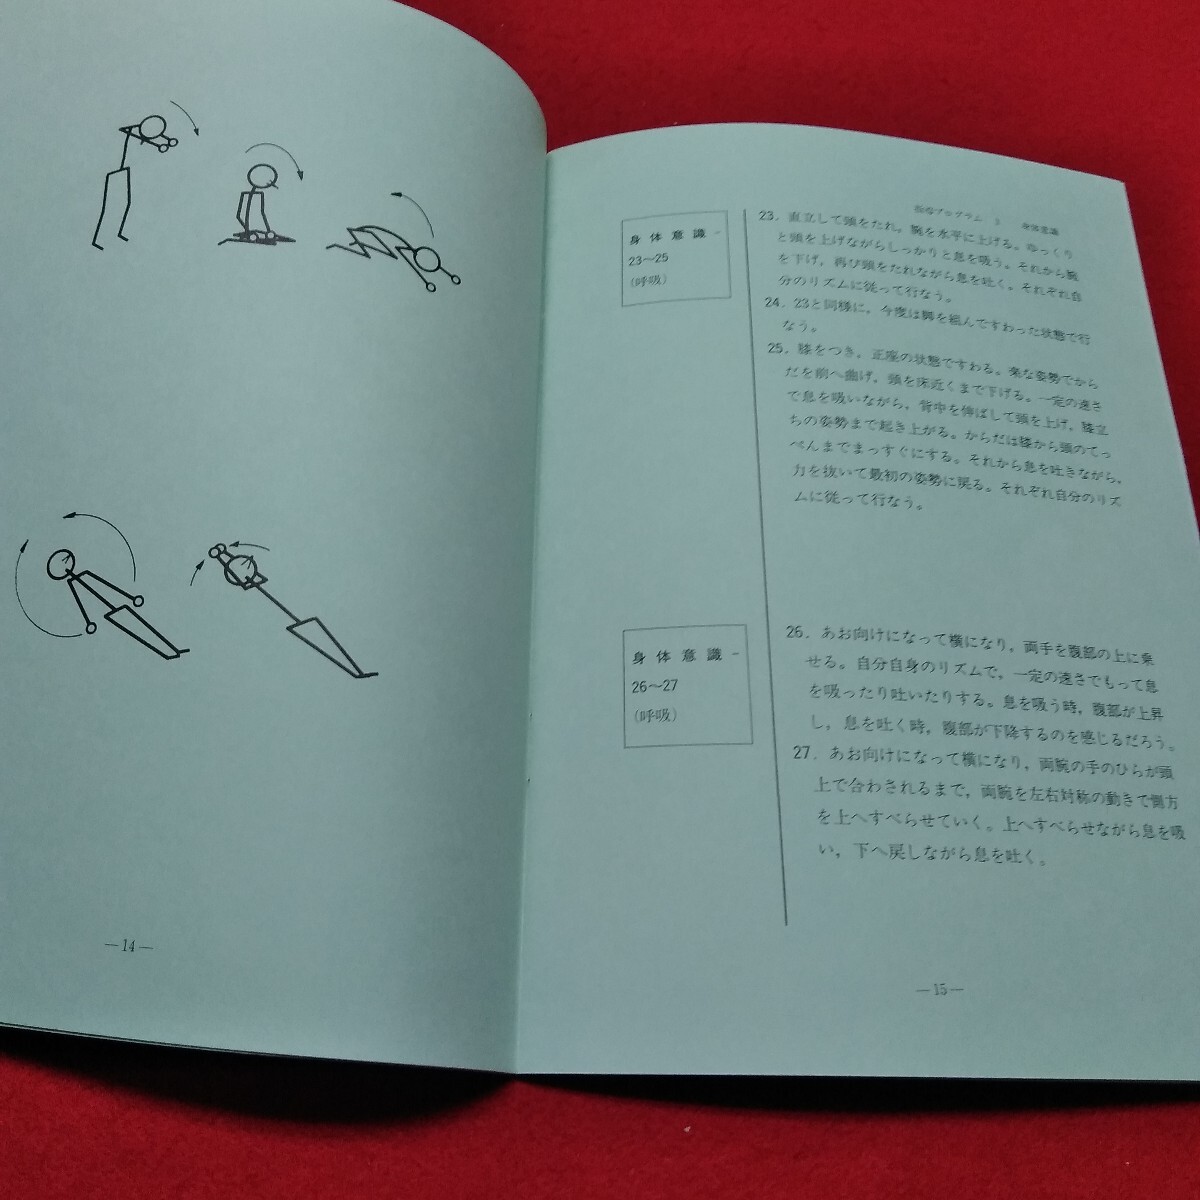 指導プログラム 3 身体意識
身体意識－
23～25
(呼吸)
23．直立して頭をたれ，腕を水平に上げる。ゆっくり
と頭を上げながらしっかりと息を吸う。それから腕
を下げ，再び頭をたれながら息を吐く。それぞれ自
分のリズムに従って行なう。
24．23と同様に，今度は脚を組んですわった状態で行
なう。
25．膝をつき，正座の状態ですわる。楽な姿勢でから
だを前へ曲げ，頭を床近くまで下げる。一定の速さ
で息を吸いながら，背中を伸ばして頭を上げ，膝立
ちの姿勢まで起き上がる。からだは膝から頭のてっ
ぺんまでまっすぐにする。それから息を吐きながら，
力を抜いて最初の姿勢に戻る。それぞれ自分のリズ
ムに従って行なう。
身体意識－
26～27
(呼吸)
26．あお向けになって横になり，両手を腹部の上に乗
せる。自分自身のリズムで，一定の速さでもって息
を吸ったり吐いたりする。息を吸う時，腹部が上昇
し，息を吐く時，腹部が下降するのを感じるだろう。
27．あお向けになって横になり，両腕の手のひらが頭
上で合わされるまで，両腕を左右対称の動きで側方
を上へすべらせていく。上へすべらせながら息を吸
い，下へ戻しながら息を吐く。
—14—
—15—